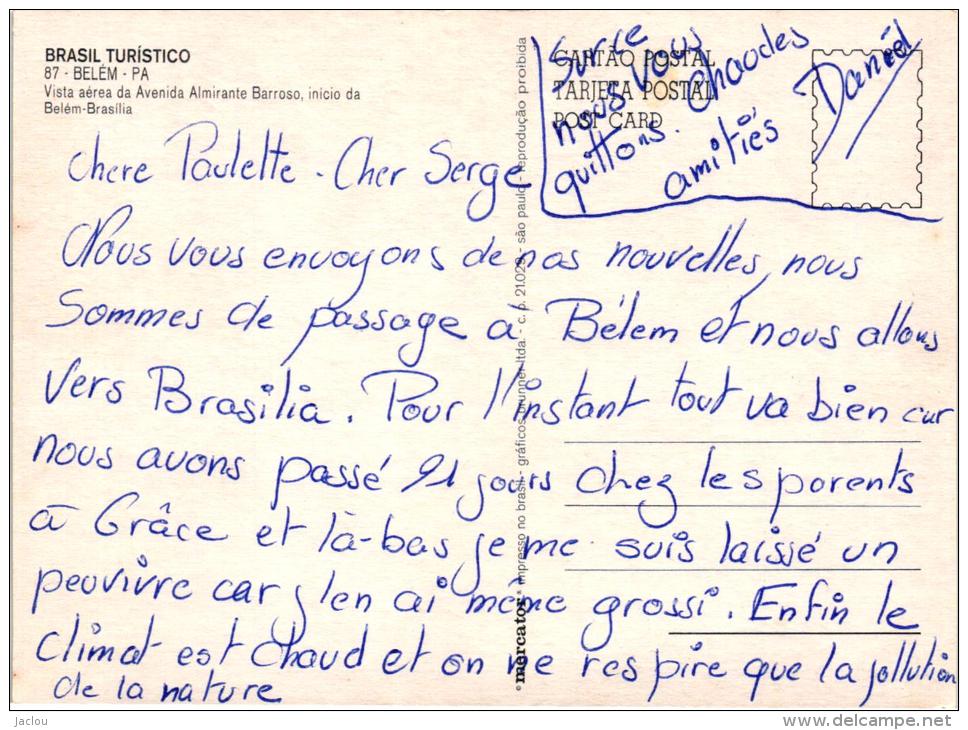 BRASIL TURÍSTICO
87 - BELÉM - PA
Vista aérea da Avenida Almirante Barroso, inicio da
Belém-Brasília
CARTÃO POSTAL
TARJETA POSTAL
POST CARD
chere Paulette - Cher Serge
Nous vous envoyons de nos nouvelles, nous
Sommes de passage à Bélem et nous allons
vers Brasilia. Pour l'instant tout va bien car
nous avons passé 21 jours chez les parents
à Grâce et là-bas je me suis laissé un
peu vivre car j'en ai même grossi. Enfin le
climat est chaud et on ne respire que la pollution
de la nature
Sur ce
nous vous
quittons. Chaudes
amitiés
Daniel
mercator impresso no brasil - gráficos brunner ltda. - c. p. 21.029 - são paulo - reprodução proibida
Jaclou
www.delcampe.net